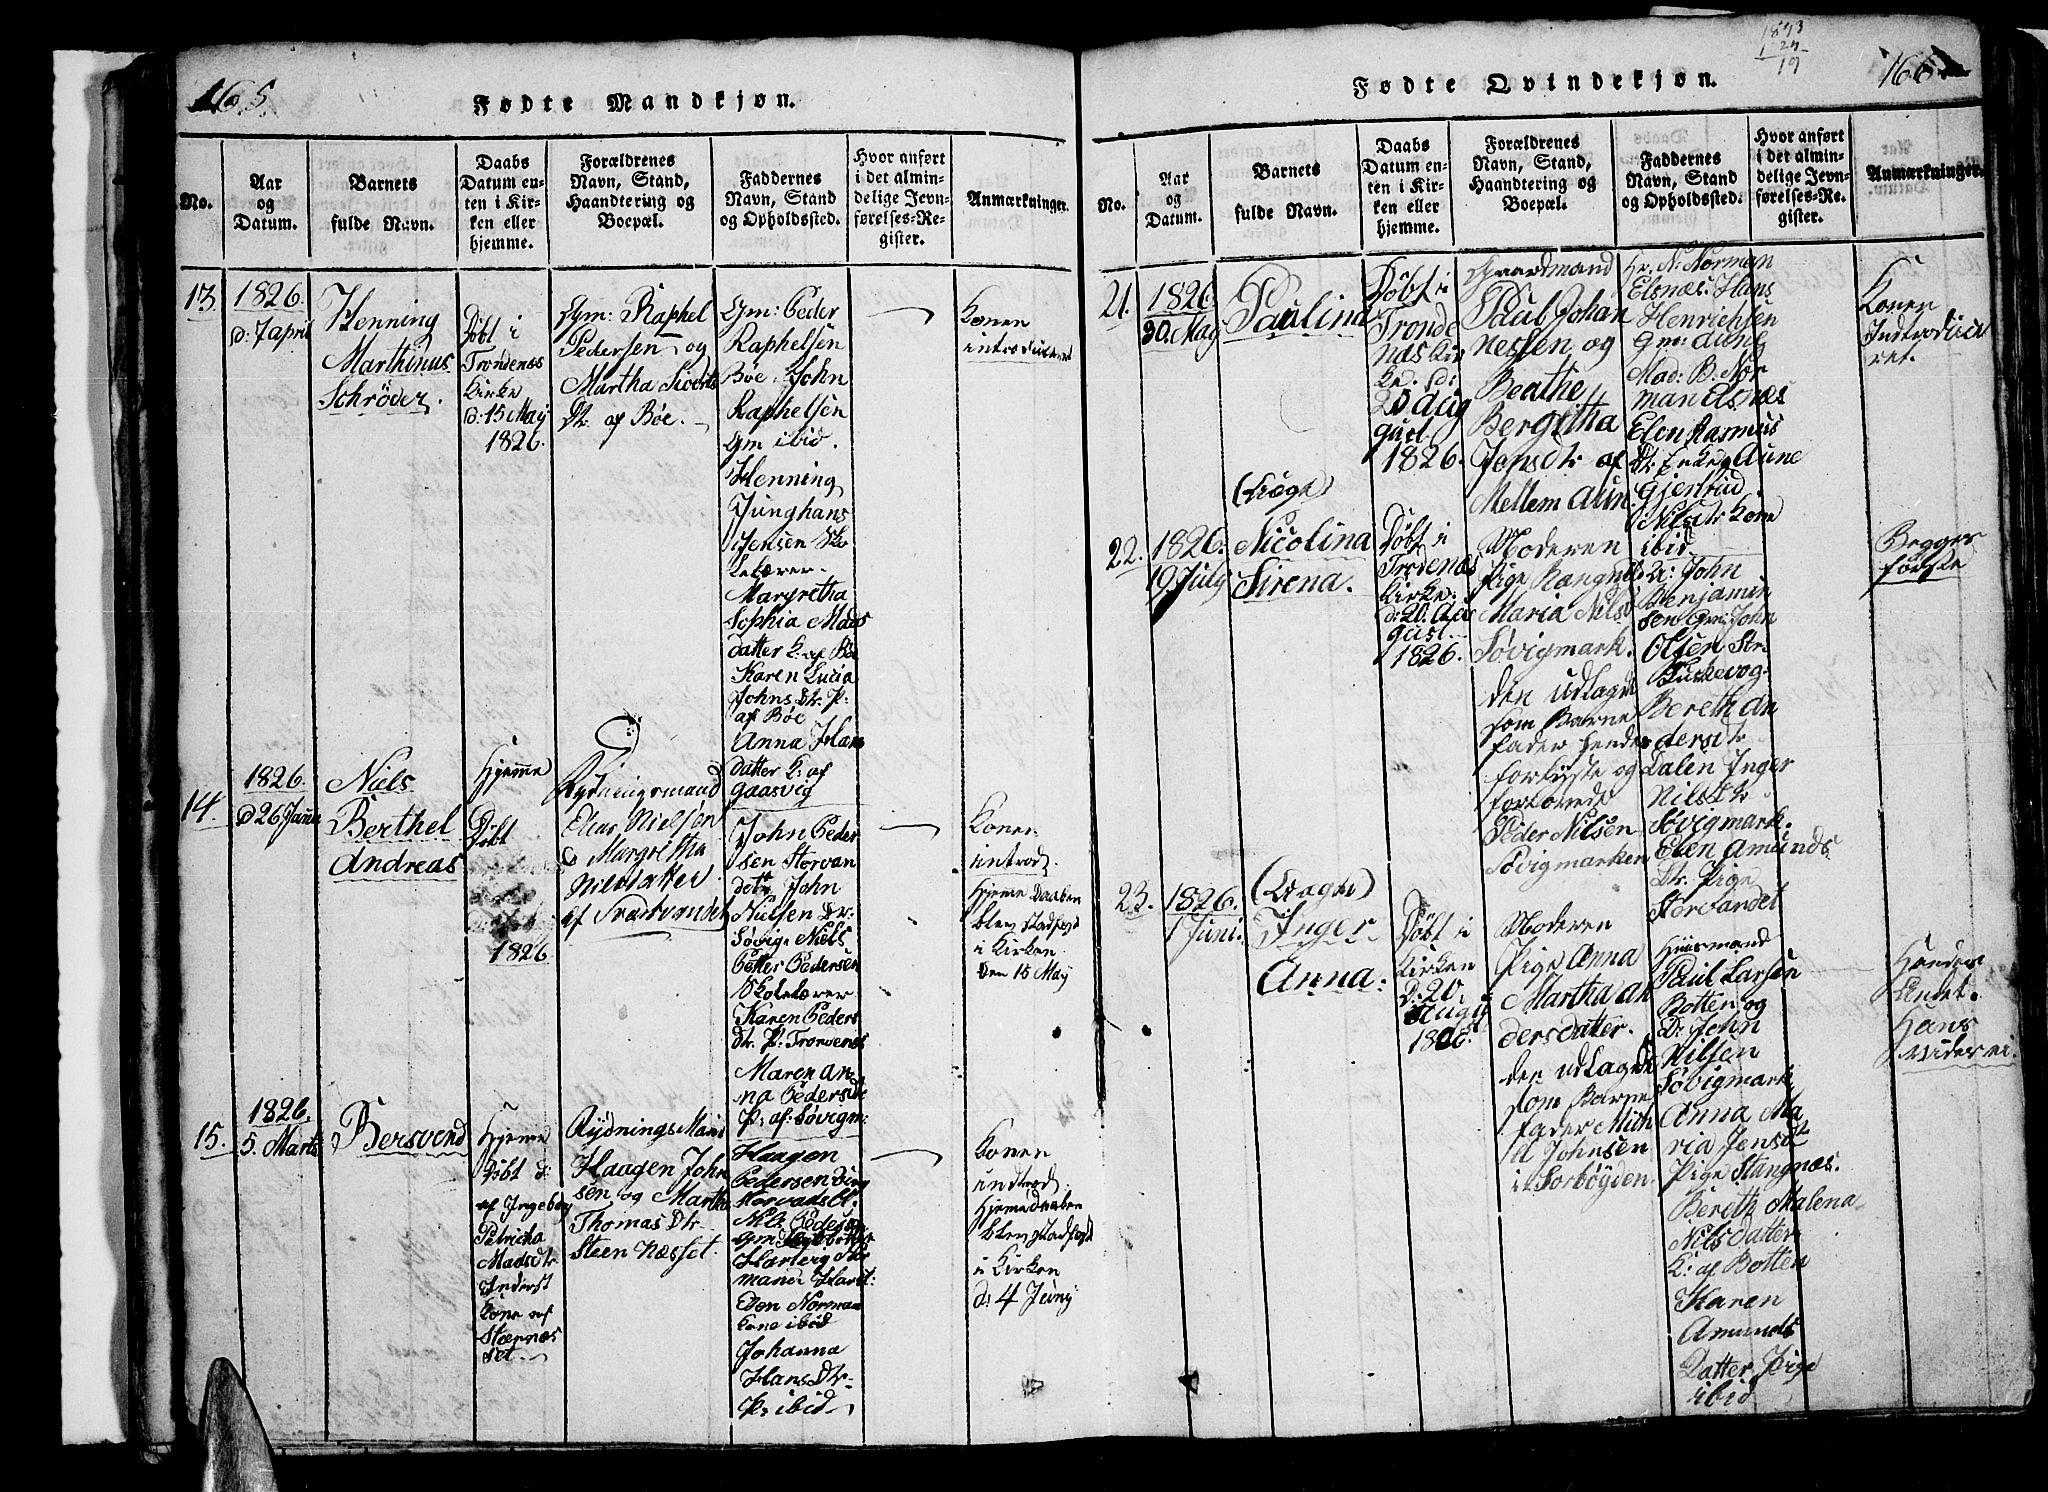 165.
Fødte Mandkjøn.
No.
Aar
og
Datum.
Barnets
fulde Navn.
Daabs
Datum en-
ten i Kir-
ken eller
hjemme.
Forældrenes
Navn, Stand,
Haandtering og
Boepæl.
Faddernes
Navn, Stand
og Opholdssted.
Hvor anført
i det almin-
delige Jevn-
førelses-Re-
gister.
Anmærkninger.
13.
1826.
d: 7 april
Henning
Marthinus
Schrøder.
Døbt i
Trondenæs
Kirke
d. 15 May
1826.
Gm: Raphel
Pedersen og
Martha Sivertz
Dtr. af Bøe.
Gm: Peder
Raphelsen
Bøe, John
Raphelsen
Gm ibid.
Henning
Junghans
Jensen Sko
lelærer.
Margretha
Sophia Mads
datter k: af Bøe
Karen Lucia
Johns Dtr. P:
af Bøe
Anna Hans
datter k: af
Gaasvig
Konen
introduceret
14.
1826.
d 26 Janu
Niels
Berthel
Andreas
Hjemme
Døbt
1826
Rydningsmand
Elias Nielsen
Margretha
Nielsdatter
af
John Peder
sen Storvan
det, John
Nielsen Dr:
Søvig, Niels
Petter Pedersen
Skolelærer
Karen Peders
Dtr. P:
Maren An
na Pedersdtr
P: af: Søvigm:
Konen
introd.
Hjeme Daaben
blev stadfest
i Kirken
den 15 May
15.
1826.
5. Marts
Bersvend
Hjeme
Døbt d:
af Ingeborg
Petricka
Madsdtr
Inderst
Kone af
Stærnæs
set.
Rydnings Man
Haagen John
sen og Martha
Thomas Dtr.
Steen næsset.
Haagen
Pedersen
Gm
Harberg
Elen Norman
Kone ibid
Johanna
Hans Dtr.
P: ibid
Konen
introd:
Hjeme daaben
blev stadfest
i Kirken
d: 4 Juny
1843
1 24
19
166
Fødte Qvindekjøn.
No.
Aar
og
Datum.
Barnets
fulde Navn.
Daabs
Datum en-
ten i Kir-
ken eller
hjemme.
Forældrenes
Navn, Stand,
Haandtering og
Boepæl.
Faddernes
Navn, Stand
og Opholdssted.
Hvor anført
i det almin-
delige Jevn-
førelses-Re-
gister.
Anmærkninger.
21.
1826
30. May
Paulina
Døbt i
Tronde
næs Kir
ke. d:
20 Aug
gust.
1826.
Gaardmand
Paul Johan
nessen og
Beathe
Bergitha
Jensdtr af
Mellem Aun.
Hr. N: Norman
Elsnæs, Hans
Henrichsen
Gm: Aune
Mad: B. Nor
man Elsnæs
Elen Rasmus
Dtr. Enke, Aune
Gjertrud
Nilsdtr Kone
ibid
Konen
Introduce
ret.
22.
1826.
19. July
(Uægte)
Nicolina
Sirena.
Døbt i
Trodenæs
Kirke.
d: 20. Au
gust.
1826.
Moderen
Pige
Maria Nilsd
Søvigmark.
den udlagde
som Barne
fader hendes
forlovede
Peder Nilsen
Søvigmarken
John
Benjamin
sen Gm: John
Olsen
Bereth An
dersdtr
Dalen, Inger
Nils Dtr
Søvigmark.
Elen Amunds
Dtr. Pige
Storvandet
Begges
første
23.
1826.
1 Juni.
(Uægte)
Inger
Anna:
Døbt i
Kirken
d: 20
August
1826.
Moderen
Pige Anna
Martha An
dersdatter.
den udlagde
som Barne
fader Mich
il Johnsen
i Sorbøgden.
Huusmand
Paul Larsen
Botten og
Dr. John
Nilsen
Søvigmark
Anna Ma
ria Jensdtr
Pige Stangnæs.
Bereth Malena
Nils datter
K: af Botten
Karen
Amunds
Datter Pige
ibid
Hendes
Andet.
Hans